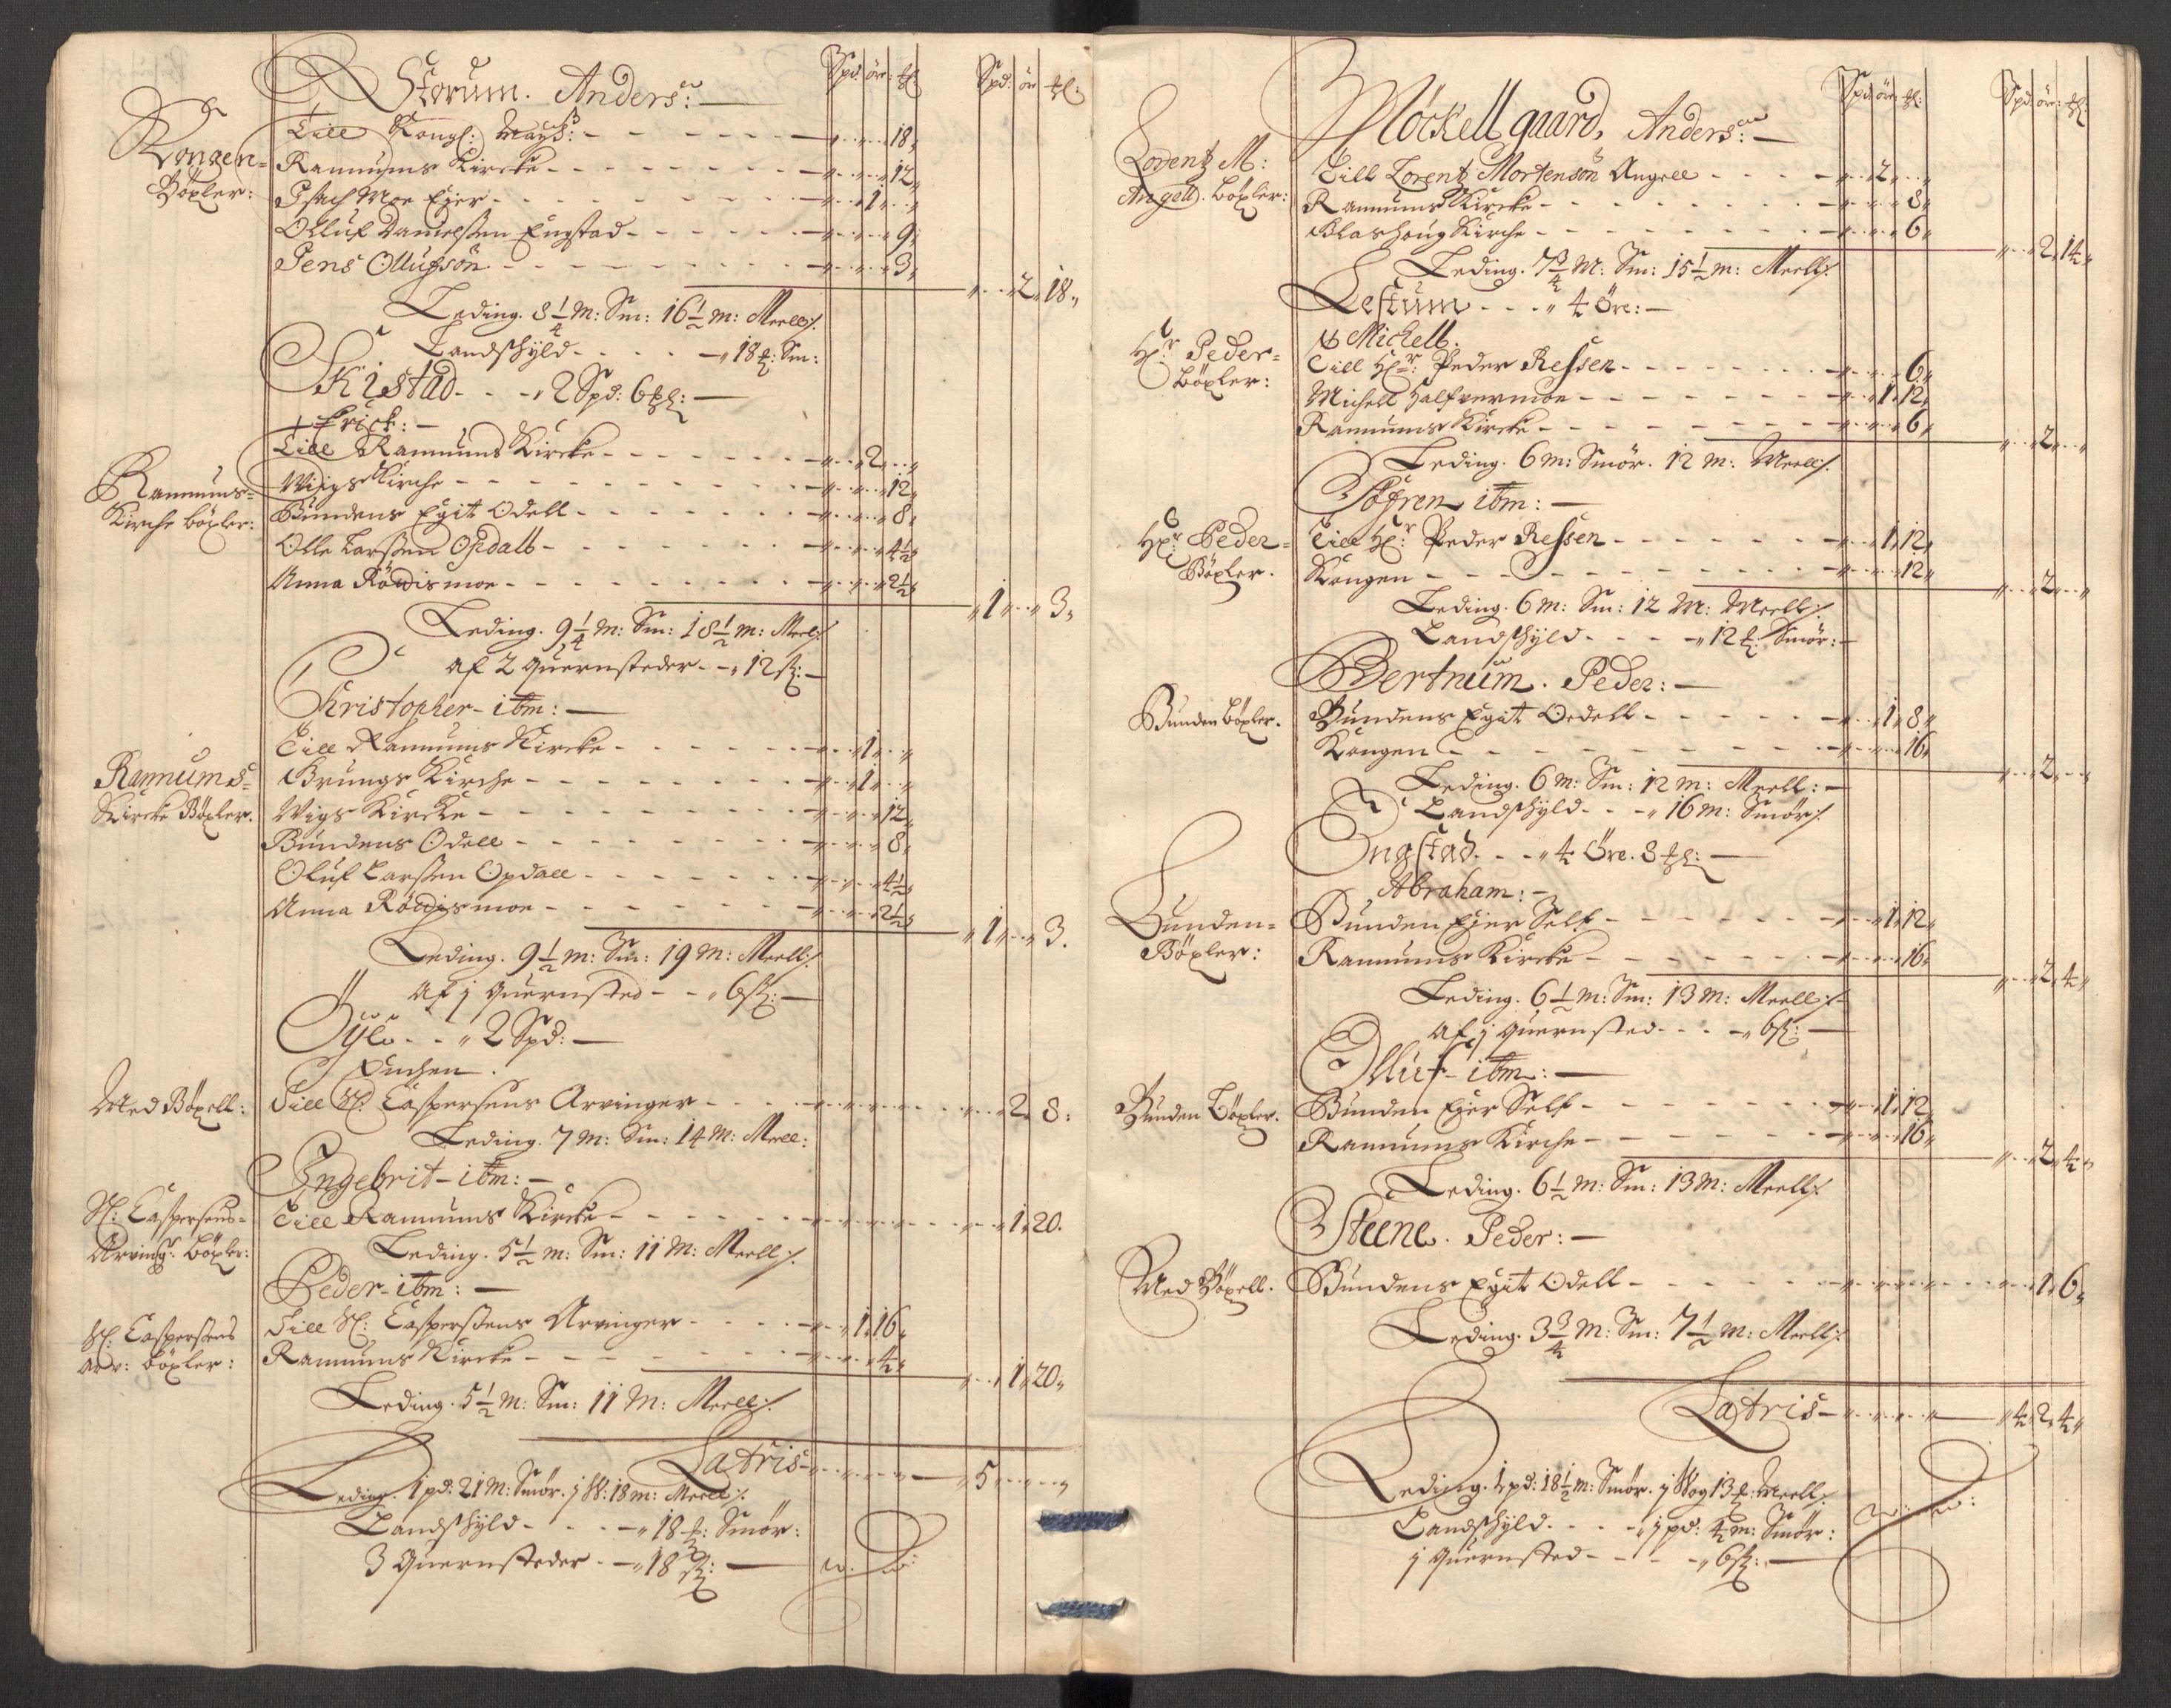 Spd: öre: ꝑl: Spd: öre ꝑl:
Storum. Anders:
Kongen-
Böxler:
Till Kongl: Mayst: - - - 18,,
Rannums Kircke - - - 12,,
Isach Moe Eier - - - 1,,
Olluf Danielssen Engstad - - - 9,,
Jens Ollufsön - - - 3,,
2,, 18,,
Leding. 8 1/4 M: Sm: 16 1/2 m: Meell:/.
Landschyld - - - 18 ꝑ: Sm:
Kistad - - - 2 Spd: 6 ꝑl: —
+ Erick: —
Rannums-
Kirche böxler:
Till Rannums Kircke - - - 2,,
Wiigs Kirche - - - 12,,
Bundens Egit Odell - - - 8,,
Olle Larssen Opdall - - - 4 1/2
Anna Rödismoe - - - 2 1/2
1,, 3,,
Leding. 9 1/4 m: Sm: 18 1/2 m: Meel:/
Af 2 Quernsteder - - 12 sk: —
Christopher - itm: —
Rannums-
Kircke Böxler.
Till Rannums Kircke - - - 1,,
Brungs Kirche - - - 1,,
Wigs Kircke - - - 12,,
Bundens Odell - - - 8,,
Oluf Larssen Opdall - - - 4 1/2
Anna Rödismoe - - - 2 1/2
1,, 3.
Leding. 9 1/2 m: Sm: 19 m: Meell:/
Af j Quernsted - - 6 sk: —
Öÿe - - 2 Spd: —
Enchen.
Med Böxell:
Till Sl: Caspersens Arvinger - - - 2,, 8:
Leding. 7 m: Sm: 14 M: Meel:
Ingebrit - itm: —
Sl: Caspersens-
Arving: böxler:
Till Rannums Kircke - - - 1,, 20.
Leding. 5 1/2 m: Sm: 11 M: Meell:/.
Peder - itm: —
Sl: Caspersens
arv: böxler:
Till Sl: Casperssens Arvinger - - - 1,, 16,,
Rannums Kircke - - - 4,,
1,, 20,,
Leding. 5 1/2 M: Sm: 11 M: Meell:/.
Latris - - - 5,,
Leding. 1 pd: 21 M: Smör. j W: 18 m: Meell:/.
Landschyld - - - 18 ꝑ: Smör:
3 Quernsteder - - 18 sk: —
Spd: öre ꝑl: Spd: öre: ꝑl:
Möckellgaard, Anders: —
Lorentz M:
Angell. böxler:
Till Lorentz Mortensön Angell - - - 2,,
Rannums Kircke - - - 8,,
Blashoug Kirche - - - 6,,
2,, 14,,
Leding. 7 3/4 M: Sm: 15 1/2 m: Meell:/.
Lestum - - - 4 Öre: —
Michell.
Hr: Peder-
böxler:
Till Hr: Peder Ressen - - - 6,,
Michell Halfvermoe - - - 1,, 12,,
Rannums Kircke - - - 6,,
2,,
Leding. 6 m: Smör. 12 m: Meell:/.
Söfren itm: —
Hr: Peder-
Böxler.
Till Hr: Peder Ressen - - - 1,, 12,,
Kongen - - - 12,,
2,,
Leding. 6 m: Sm: 12 M: Meell:/.
Landschyld - - - 12 ꝑ: Smör: —
Bertnum. Peder: —
Bunden böxler.
Bundens Egit Oedell - - - 1,, 8,,
Kongen - - - 16,,
2,,
Leding. 6 m: Sm: 12 m: Meell: —
Landschyld - - - 16 m: Smör:/
Engstad - - - 4 Öre. 8 ꝑl: —
Abraham: —
Bunden-
Böxler:
Bunden Eier Self - - - 1,, 12,,
Rannums Kircke - - - 16,,
2,, 4,,
Leding. 6 1/2 m: Sm: 13 m: Meell:/
Af j Quernsted - - - 6 sk: —
Olluf - itm: —
Bunden Böxler.
Bunden Eier Self - - - 1,, 12,,
Rannums Kirche - - - 16,,
2,, 4,,
Leding. 6 1/2 m: Sm: 13 m: Meell:/
Steene. Peder: —
Med Böxell.
Bundens Egit Odell - - - 1,, 6,,
Leding. 3 3/4 M: Sm: 7 1/2 m: Meell:/
Latris - - - 4,, 2,, 4,,
Leding. 1 pd: 18 1/2 m: Smör. j Wog 13 ꝑ: Meell:/.
Landschyld - - - j pd: 4 m: Smör:
j Quernsted - - - 6 sk: —